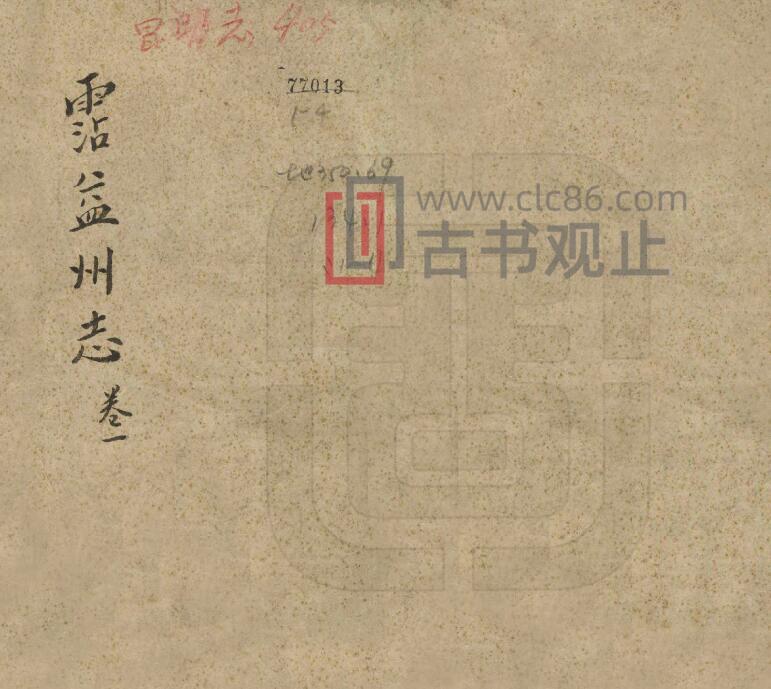 昆明志 405
77013
1-4
霑益州志 卷一
www.clc86.com
古书观止